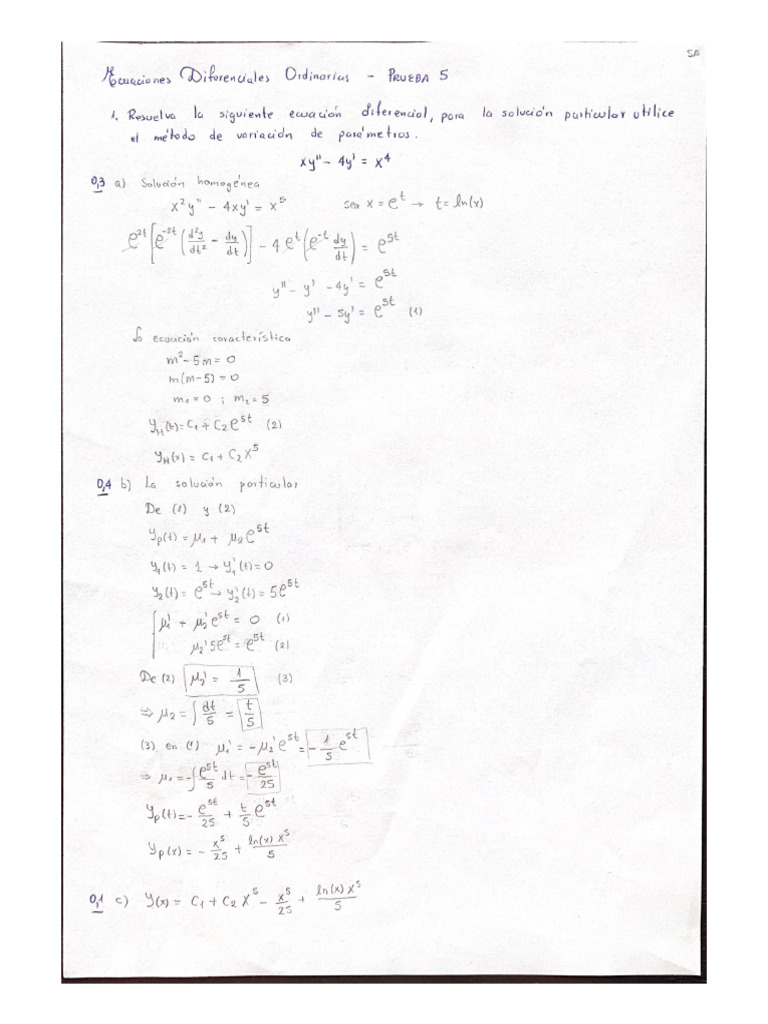 5A
Ecuaciones Diferenciales Ordinarias - PRUEBA 5
1. Resuelva la siguiente ecuación diferencial, para la solución particular utilice
el método de variación de parámetros.
xy'' - 4y' = x⁴
0,3 a) Solución homogénea
x²y'' - 4xy' = x⁵ sea x = e^t → t = ln(x)
e^{2t}[e^{-2t}(d²y/dt² - dy/dt)] - 4e^t(e^{-t} dy/dt) = e^{5t}
y'' - y' - 4y' = e^{5t}
y'' - 5y' = e^{5t} (1)
ecuación característica
m² - 5m = 0
m(m-5) = 0
m₁ = 0 ; m₂ = 5
y_H(t) = C₁ + C₂e^{5t} (2)
y_H(x) = C₁ + C₂X⁵
0,4 b) La solución particular
De (1) y (2)
y_p(t) = μ₁ + μ₂e^{5t}
y₁(t) = 1 → y₁'(t) = 0
y₂(t) = e^{5t} → y₂'(t) = 5e^{5t}
μ₁' + μ₂'e^{5t} = 0 (1)
μ₂'5e^{5t} = e^{5t} (2)
De (2) μ₂' = 1/5 (3)
⇒ μ₂ = ∫dt/5 = t/5
(3) en (1) μ₁' = -μ₂'e^{5t} = -1/5 e^{5t}
⇒ μ₁ = -∫e^{5t}/5 dt = -e^{5t}/25
y_p(t) = -e^{5t}/25 + t/5 e^{5t}
y_p(x) = -x⁵/25 + ln(x)x⁵/5
0,1 c) y(x) = C₁ + C₂X⁵ - x⁵/25 + ln(x)x⁵/5